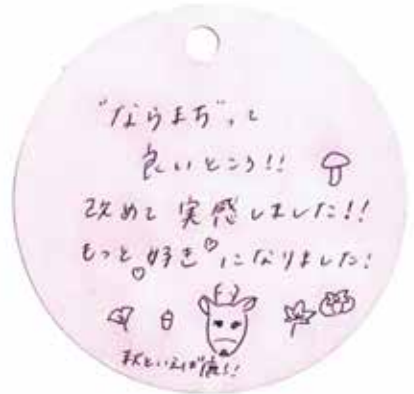 "ならまち"って
良いところ!!
改めて実感しました!!
もっと♡好き♡になりました!
秋といえば鹿!